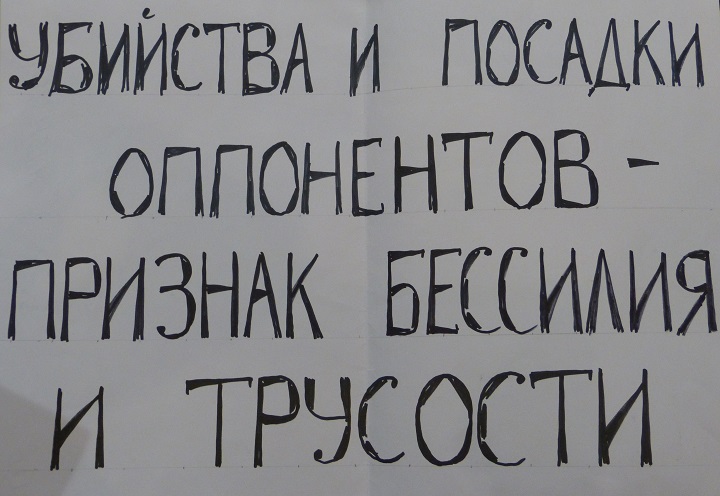 УБИЙСТВА И ПОСАДКИ
ОППОНЕНТОВ -
ПРИЗНАК БЕССИЛИЯ
И ТРУСОСТИ